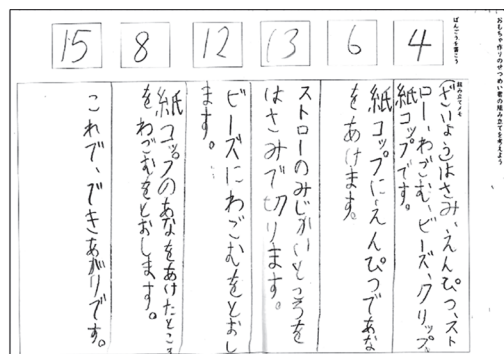 おもちゃ作りのせつめい書の組み立てを考えよう
ばんごうを書こう
4
6
13
12
8
15
組み立てメモ
ざいりょうはさみ、えんぴつ、スト
ロー、わごむ、ビーズ、クリップ、
紙コップです。
紙コップに、えんぴつであな
をあけます。
ストローのみじかいところを
はさみで切ります。
ビーズにわごむをとおし
ます。
紙コップのあなをあけたところ
をわごむをとおします。
これで、できあがりです。